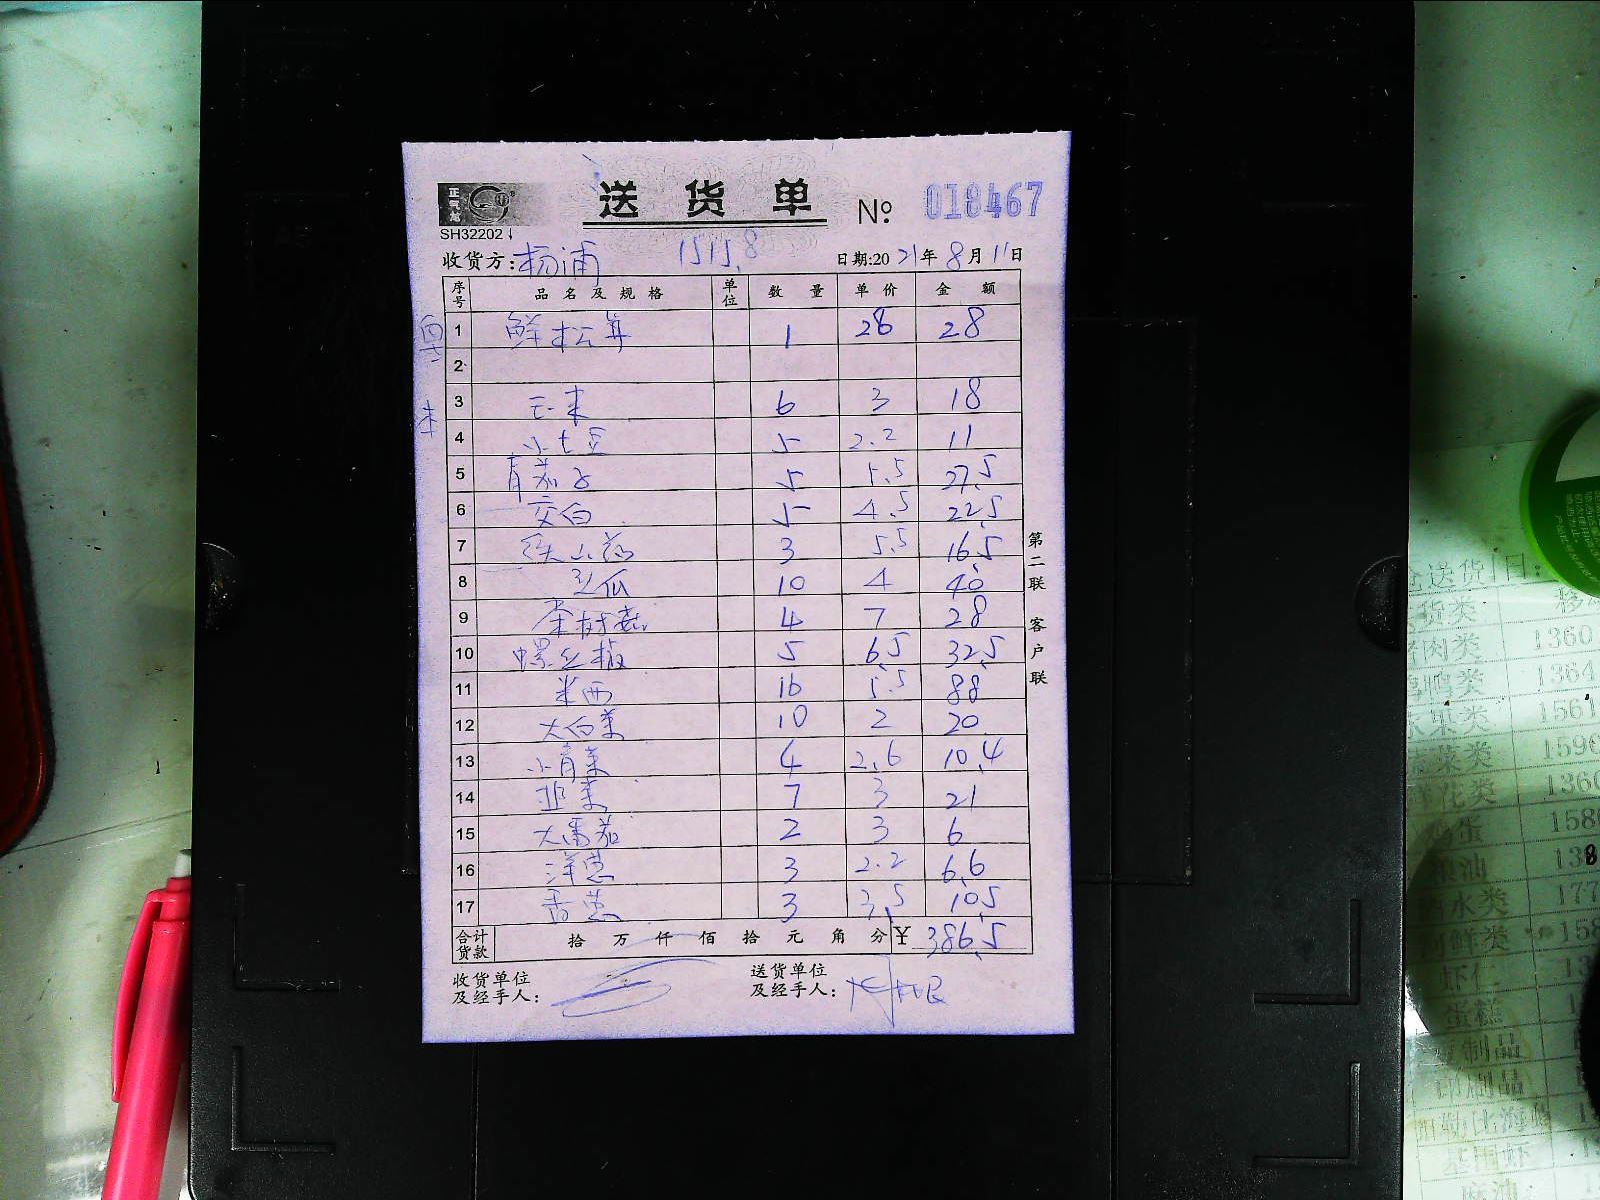 正气龙
送 货 单 № 018467
SH32202
收货方: 杨浦 1515.8 日期:2021年8月11日
序号 品名及规格 单位 数量 单价 金额
1 鲜松茸 1 28 28
2
3 玉米 6 3 18
4 小土豆 5 2.2 11
5 青茄子 5 5.5 27.5
6 茭白 5 4.5 22.5
7 铁山药 3 5.5 16.5
8 瓜 10 4 40
9 茶树菇 4 7 28
10 螺丝椒 5 6.5 32.5
11 米西 16 5.5 88
12 大白菜 10 2 20
13 小青菜 4 2.6 10.4
14 韭菜 7 3 21
15 大番茄 2 3 6
16 洋葱 3 2.2 6.6
17 香葱 3 3.5 10.5
合计货款 拾 万 仟 佰 拾 元 角 分 ¥ 386.5
收货单位及经手人:
送货单位及经手人:
第二联 客户联
送货日:
货类
肉类 1360
鸭类 1364
水果类 1561
蔬菜类 1596
花类 1360
鸡蛋 158
粮油 138
水类 177
河鲜类 158
虾仁
蛋糕
制品
印刷品
基围虾
麻油